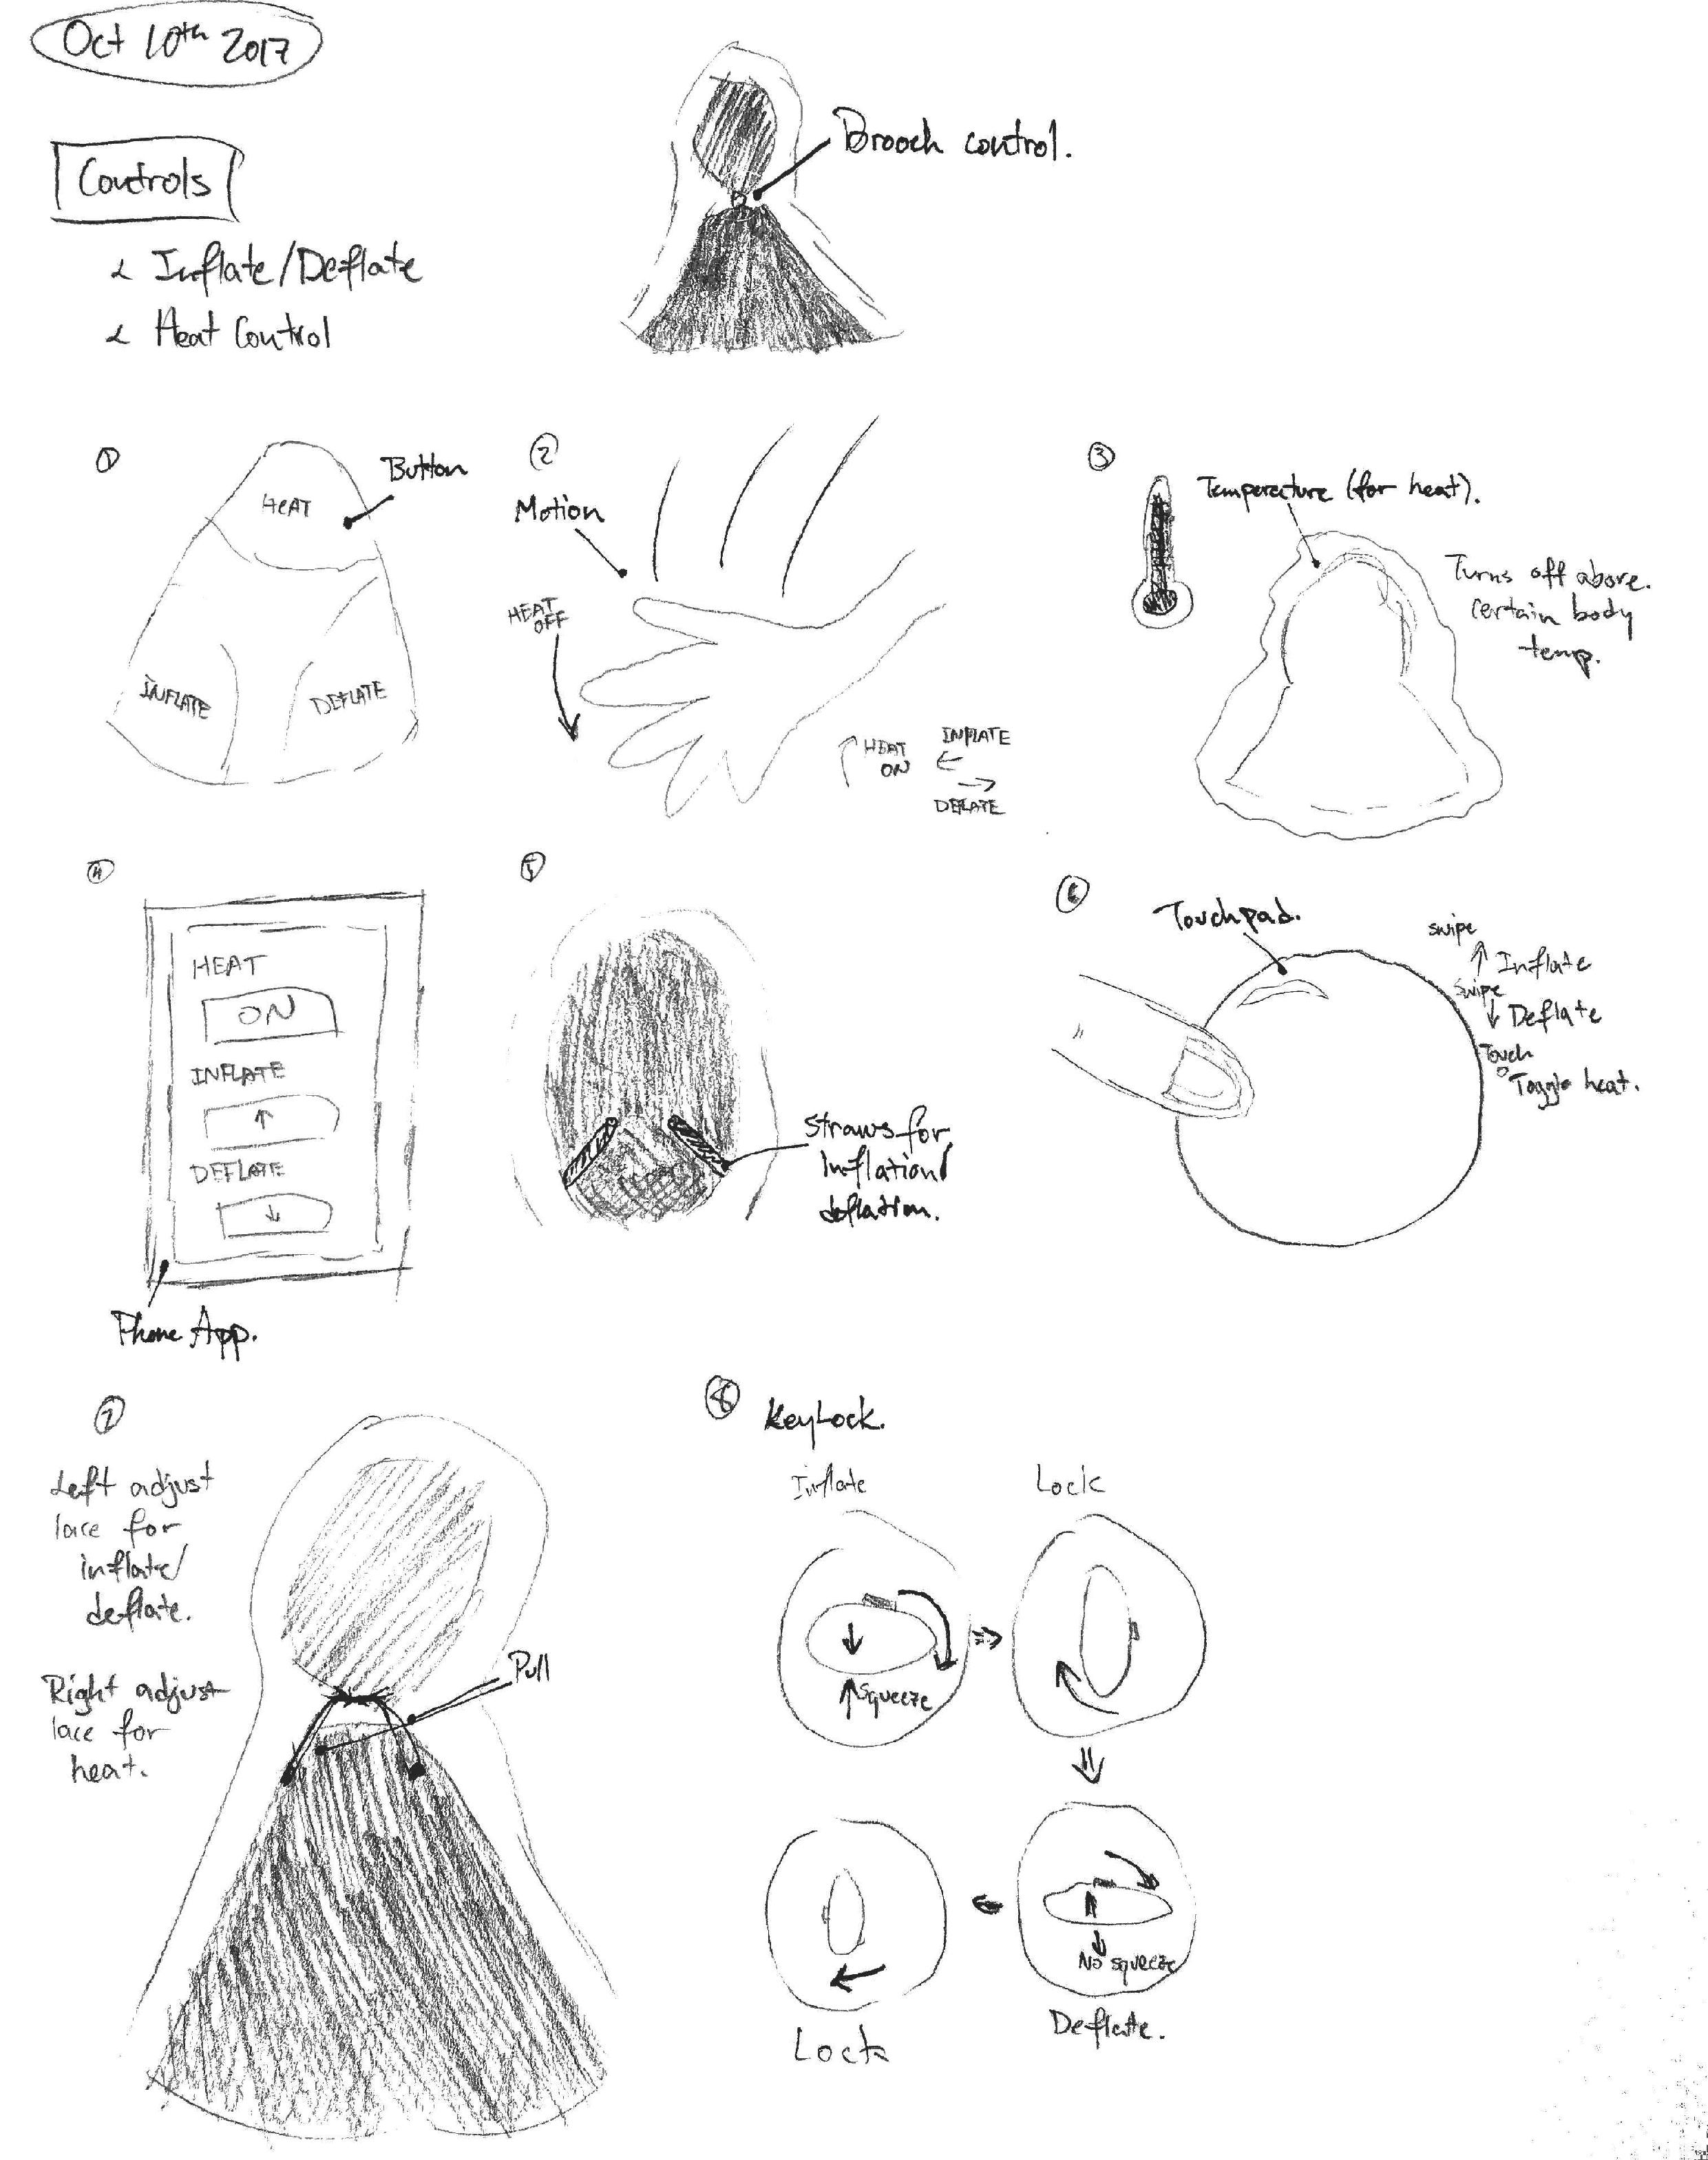 Oct 10th 2017
Controls
Inflate/Deflate
Heat Control
Brooch control.
①
HEAT
Button
INFLATE
DEFLATE
②
Motion
HEAT
OFF
HEAT
ON
INFLATE
←
→
DEFLATE
③
Temperature (for heat).
Turns off above.
certain body
temp.
④
HEAT
ON
INFLATE
↑
DEFLATE
↓
Phone App.
⑤
Straws for
Inflation/
deflation.
⑥
Touchpad.
swipe
↑ Inflate
swipe
↓ Deflate
Touch
Toggle heat.
⑦
Left adjust
lace for
inflate/
deflate.
Right adjust
lace for
heat.
Pull
⑧ KeyLock.
Inflate
Squeeze
Lock
No squeeze
Deflate.
Lock